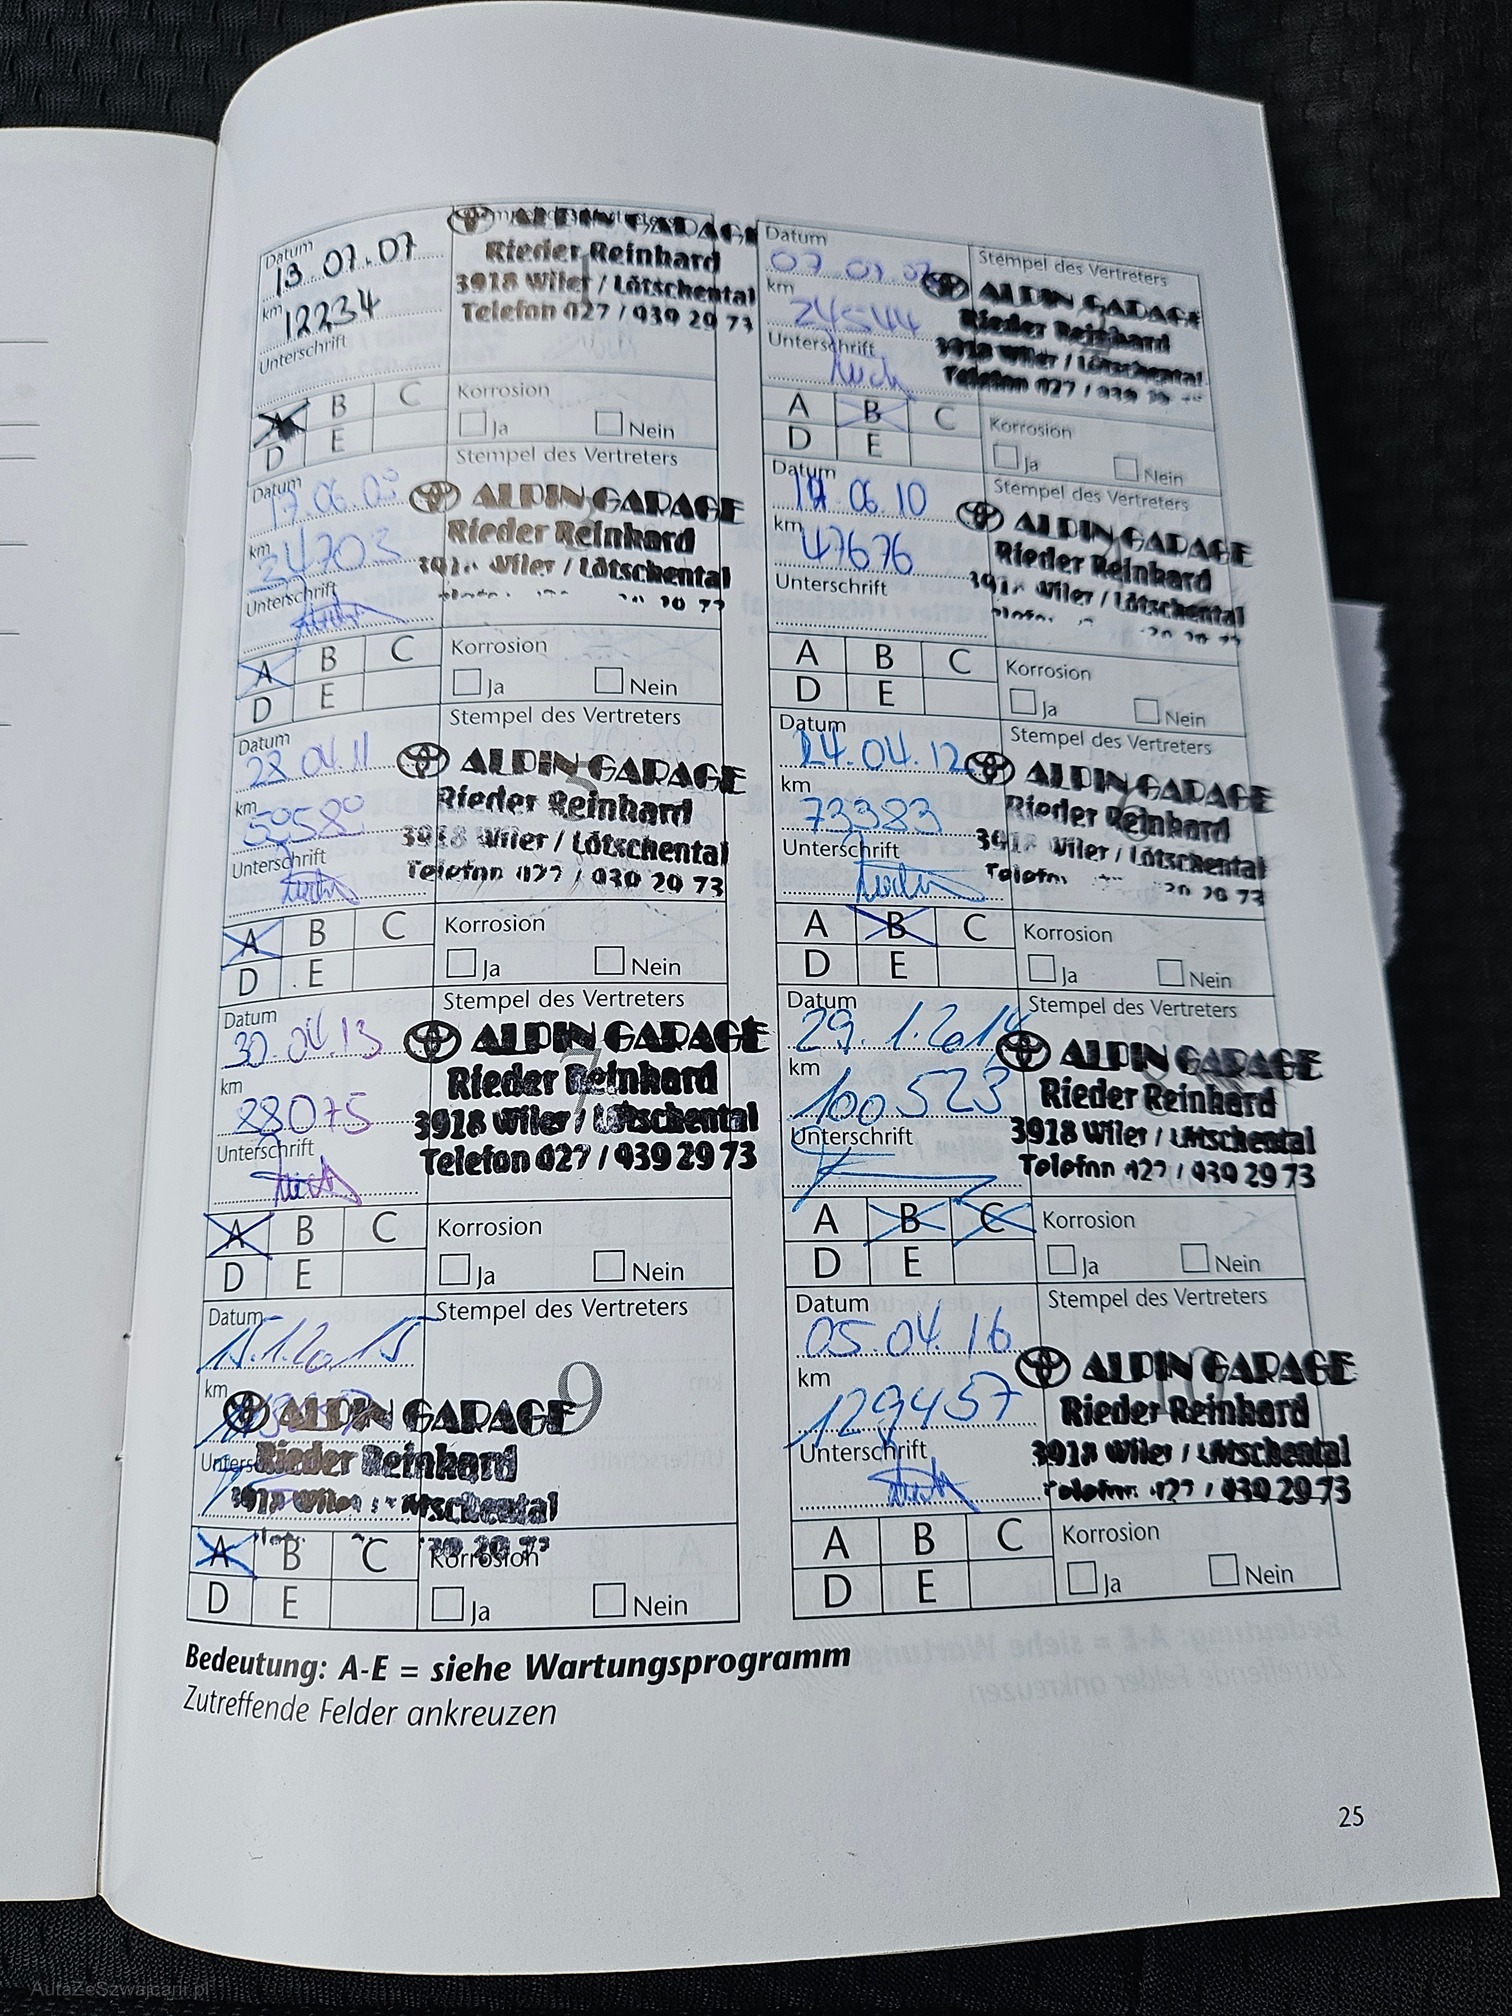 Datum
13.07.07
km
12234
Unterschrift
ALPIN GARAGE
Rieder Reinhard
3918 Wiler / Lötschental
Telefon 027 / 939 29 73
A B C
D E
Korrosion
Ja Nein
Datum
07.07.
km
24544
Unterschrift
Stempel des Vertreters
ALPIN GARAGE
Rieder Reinhard
3918 Wiler / Lötschental
Telefon 027 / 939 29
A B C
D E
Korrosion
Ja Nein
Datum
17.06.09
km
34703
Unterschrift
Stempel des Vertreters
ALPIN GARAGE
Rieder Reinhard
3918 Wiler / Lötschental
29 73
A B C
D E
Korrosion
Ja Nein
Datum
06.10
km
47676
Unterschrift
Stempel des Vertreters
ALPIN GARAGE
Rieder Reinhard
3918 Wiler / Lötschental
29 73
A B C
D E
Korrosion
Ja Nein
Datum
28.04.11
km
59580
Unterschrift
Stempel des Vertreters
5
ALPIN GARAGE
Rieder Reinhard
3918 Wiler / Lötschental
Telefon 027 / 939 29 73
A B C
D E
Korrosion
Ja Nein
Datum
24.04.12
km
73383
Unterschrift
Stempel des Vertreters
ALPIN GARAGE
Rieder Reinhard
3918 Wiler / Lötschental
Telefon 29 73
A B C
D E
Korrosion
Ja Nein
Datum
30.04.13
km
88075
Unterschrift
Stempel des Vertreters
7
ALPIN GARAGE
Rieder Reinhard
3918 Wiler / Lötschental
Telefon 027 / 939 29 73
A B C
D E
Korrosion
Ja Nein
Datum
29.1.2014
km
100523
Unterschrift
Stempel des Vertreters
ALPIN GARAGE
Rieder Reinhard
3918 Wiler / Lötschental
Telefon 027 / 939 29 73
A B C
D E
Korrosion
Ja Nein
Datum
15.1.2015
km
Stempel des Vertreters
9
ALPIN GARAGE
Rieder Reinhard
3918 Wiler / Lötschental
939 29 73
A B C
D E
Korrosion
Ja Nein
Datum
05.04.16
km
129457
Unterschrift
Stempel des Vertreters
10
ALPIN GARAGE
Rieder Reinhard
3918 Wiler / Lötschental
Telefon 027 / 939 29 73
A B C
D E
Korrosion
Ja Nein
Bedeutung: A-E = siehe Wartungsprogramm
Zutreffende Felder ankreuzen
25
AutaZeSzwajcarii.pl